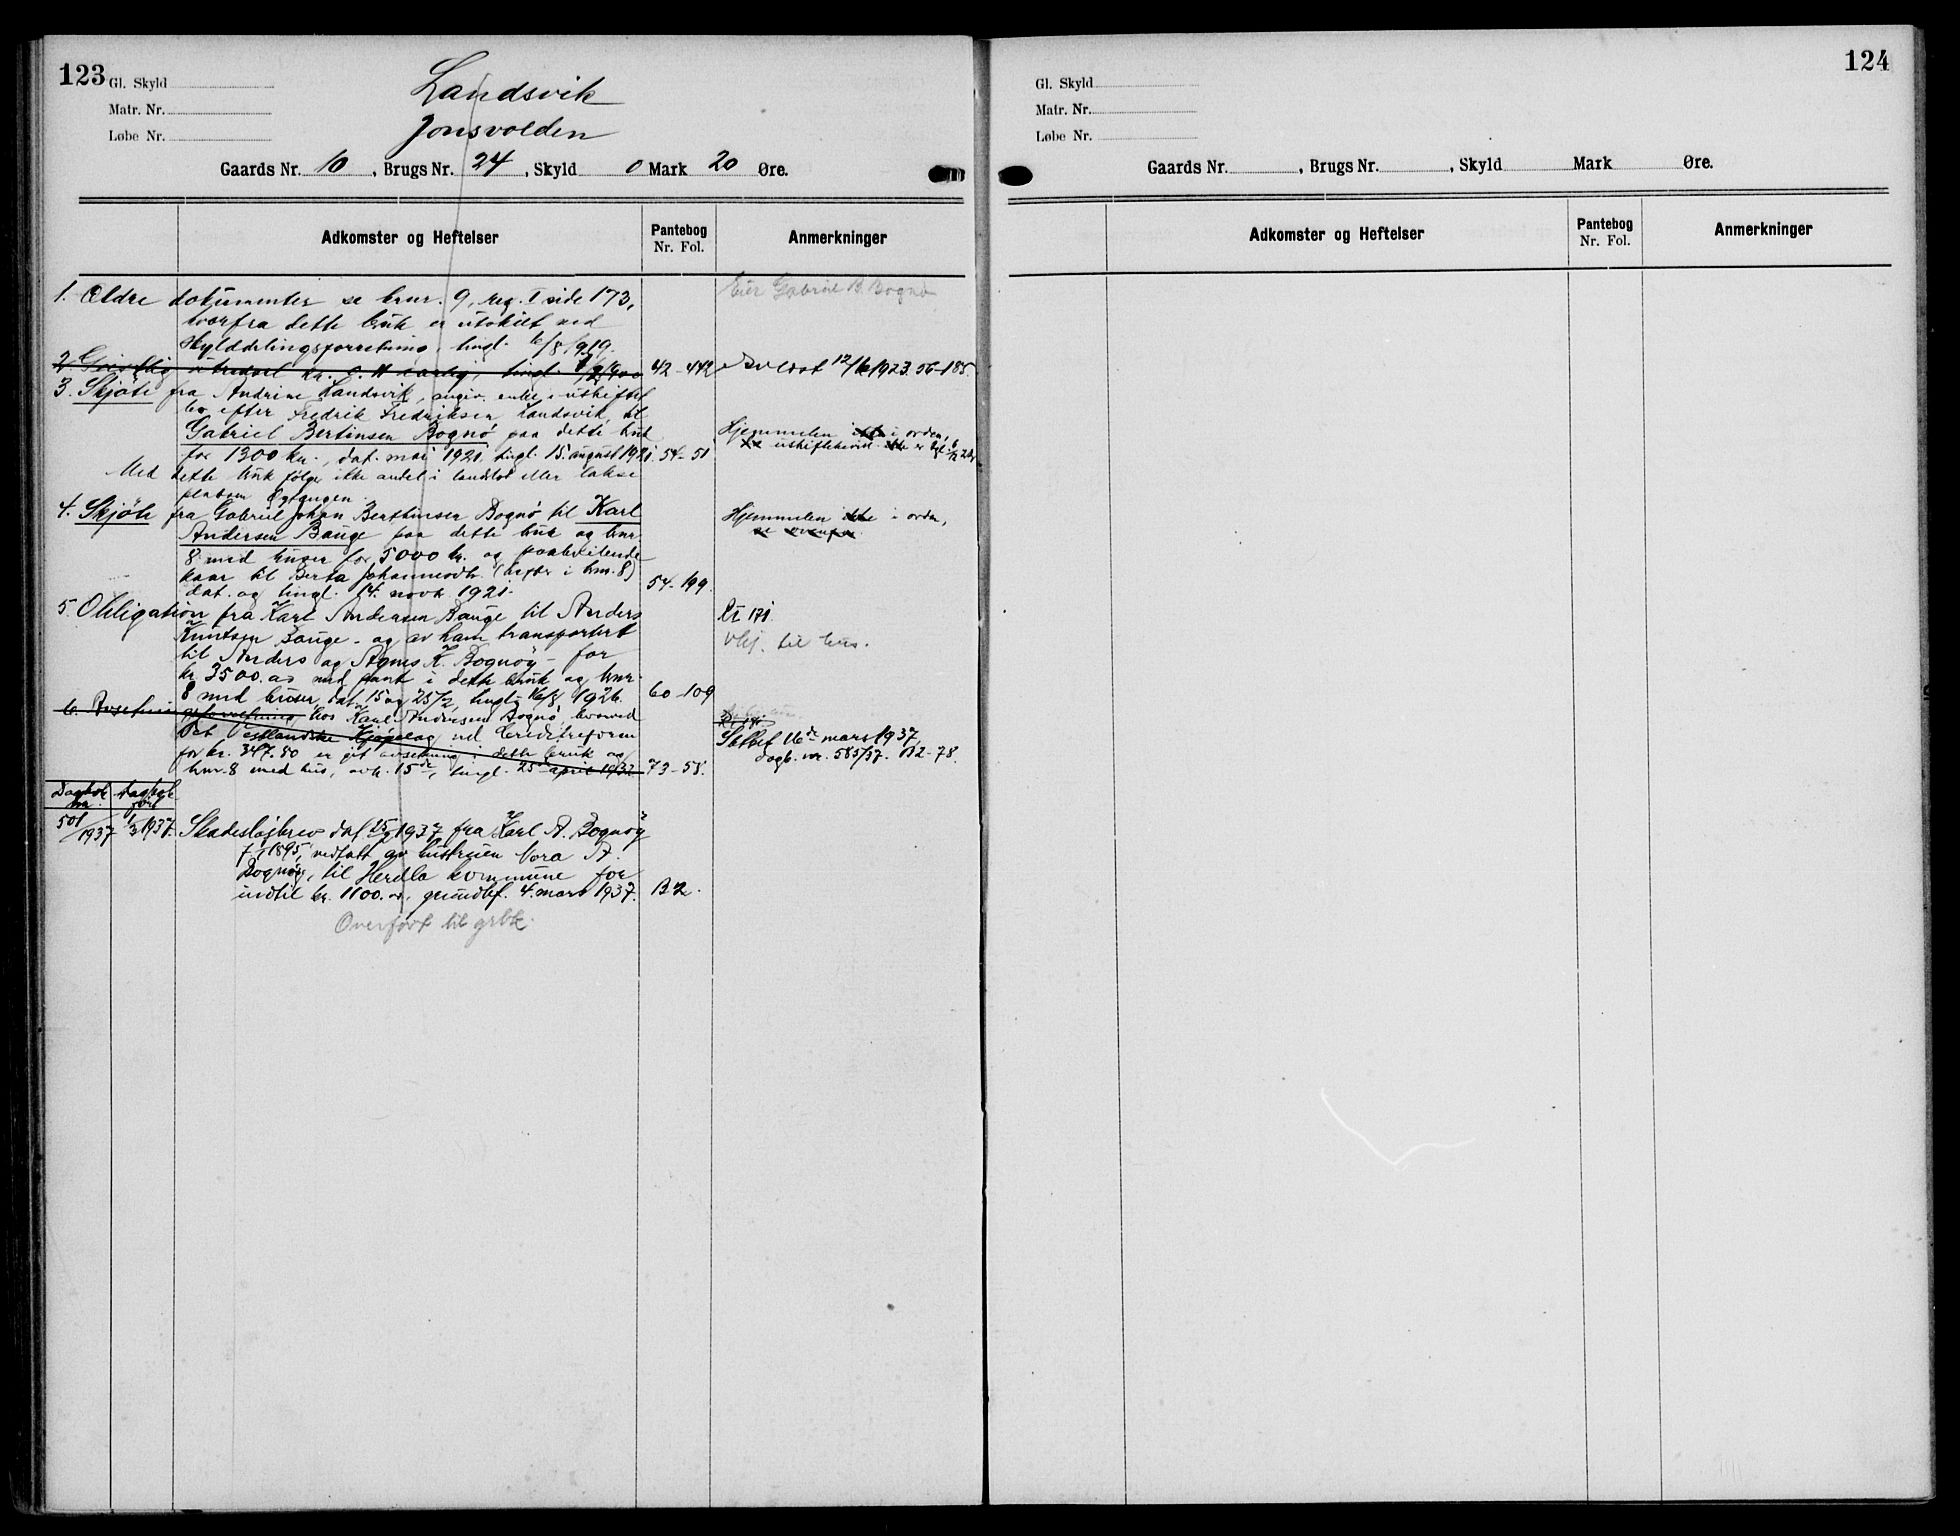 123
Gl. Skyld
Matr. Nr.
Løbe Nr.
Landsvik
Jonsvolden
Gaards Nr. 10, Brugs Nr. 24, Skyld 0 Mark 20 Øre.
Adkomster og Heftelser
Pantebog
Nr. Fol.
Anmerkninger
Eier Gabriel B. Bognø
1. Ældre dokumenter se bnr. 9, reg. I side 173,
hvorfra dette bruk er utskilt ved
skylddelingsforretning, tingl. 6/8 1919.
2. 42-442 Avløst 12/6 1923. 56-185.
3. Skjøte fra Andrine Landsvik, enke i uskiftet
bo efter Fredrik Fredriksen Landsvik, til
Gabriel Bertinsen Bognø paa dette bruk
for 1300 kr., dat. mai 1921, tingl. 15. august 1921. 54-51
Hjemmelen ikke i orden,
Med dette bruk følger ikke andel i landslod eller lakse
4. Skjøte fra Gabriel Johan Bertinsen Bognø til Karl
Andersen Bauge paa dette bruk og bnr.
8 med huser for 5000 kr. og paahvilende
kaar til Berta Johannesdtr. (hefter i bnr. 8)
dat. og tingl. 14. novb. 1921. 54-199.
Hjemmelen ikke i orden,
se ovenfor.
5. Obligation fra Karl Andersen Bauge til Anders
Knutsen Bauge - og av ham transportert
til Anders og Agnes K. Bognøy - for
kr. 3500.00 med pant i dette bruk og bnr.
8 med huser, dat. 15 og 25/2, tingl. 16/8 1926. 60-109
til hus.
6. hos Karl Andersen Bognø, hvorved
Det Vestlandske Kjøpelag ved Creditreform
for kr. 347.80 er git utlegg i dette bruk og
bnr. 8 med hus, avh. 15de, tingl. 25de april 1932. 73-58.
Slettet 16de mars 1937,
dagb. nr. 585/37. B2-78.
Dagbok nr.
Dagbok ført
501/1937
1/3 1937.
Skadesløsbrev dat. 25/2 1937 fra Karl A. Bognøy
f. 1895, vedtatt av hustruen Nora A.
Bognøy, til Herdla kommune for
indtil kr. 1100.00, grundbf. 4. mars 1937. B2.
Overført til grbk.
124
Gl. Skyld
Matr. Nr.
Løbe Nr.
Gaards Nr. , Brugs Nr. , Skyld Mark Øre.
Adkomster og Heftelser
Pantebog
Nr. Fol.
Anmerkninger